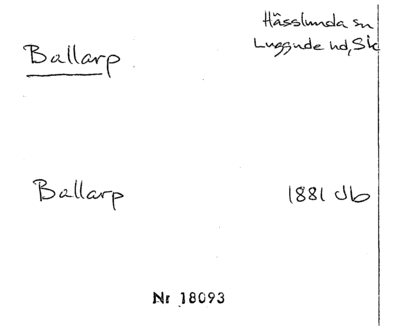 Hässlunda sn
Luggude hd, Sk
Ballarp
Ballarp 1881 Jb
Nr 18093